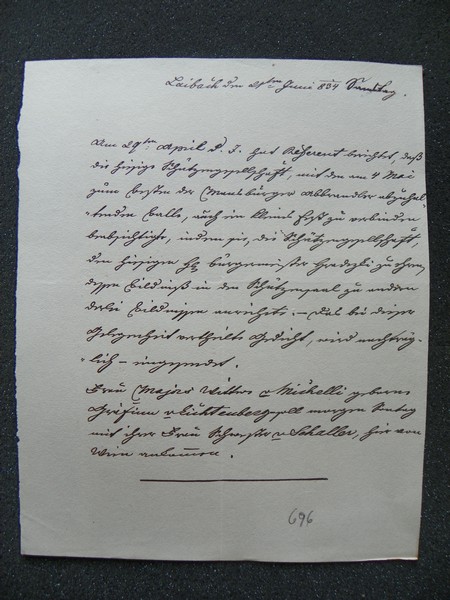 Laibach den 21ten Juni 834 Samstag.
Am 29ten April d. J. hat Referent berichtet, daß
die hiesige Schützengesellschaft, mit den am 4 Mai
zum Besten der Abbrandler abzuhal-
tenden Balle, auch ein kleines Fest zu verbinden
beabsichtigte, indem sie, die Schützengesellschaft,
den hiesigen Hr Bürgermeister Hradezki zu ehren,
dessen Bildniß in den Schützensaal zu andern
derlei Bildnissen anreihete. – Das bei dieser
Gelegenheit vertheilte Gedicht, wird nachträg-
lich – eingesendet.
Frau Majors Wittwe v. geborne
Gräfinn v. Lichtenberg soll morgen Sontag
mit ihrer Frau Schwester v Schaller, hier von
Wien ankommen.
696